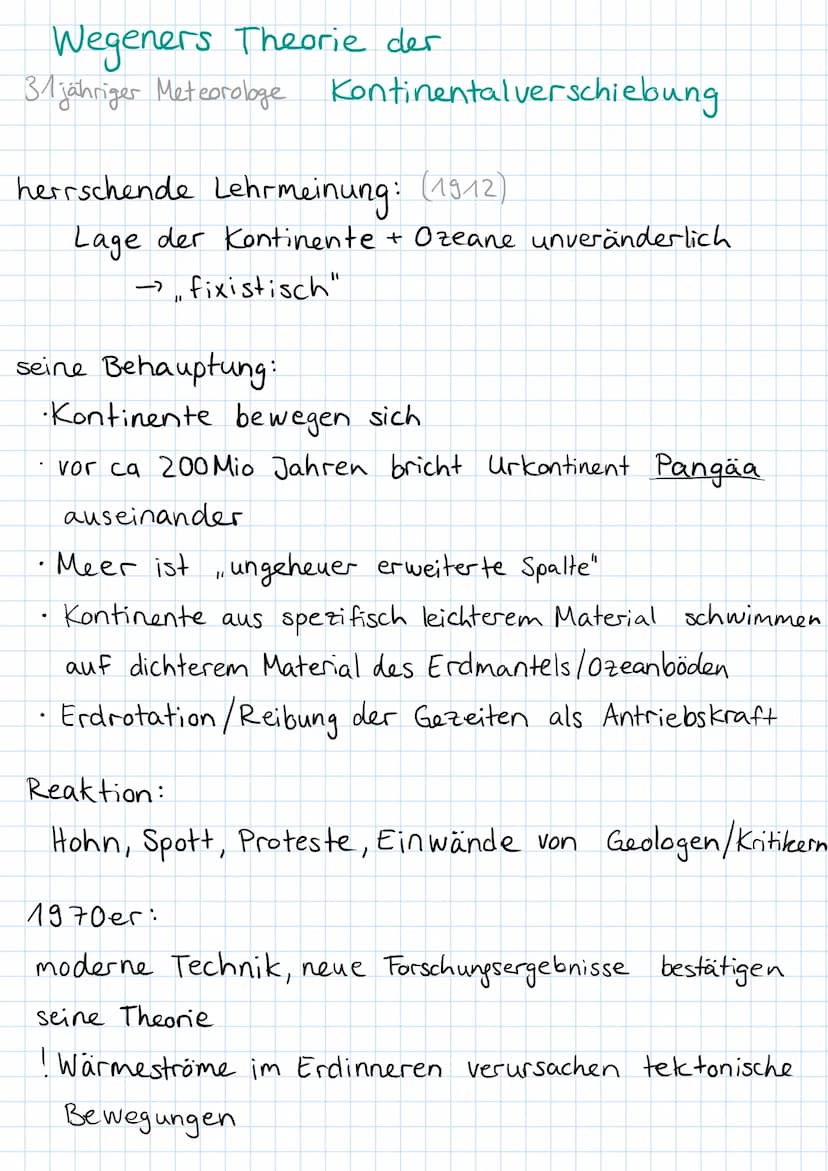 Wegeners Theorie der
31jähriger Meteorologe Kontinentalverschiebung
herrschende Lehrmeinung: (1912)
Lage der Kontinente + Ozeane unveränderlich
→ „fixistisch"
seine Behauptung:
·Kontinente bewegen sich
· vor ca 200 Mio Jahren bricht Urkontinent Pangäa
auseinander
· Meer ist „ungeheuer erweiterte Spalte"
· Kontinente aus spezifisch leichterem Material schwimmen
auf dichterem Material des Erdmantels/Ozeanböden
· Erdrotation/Reibung der Gezeiten als Antriebskraft
Reaktion:
Hohn, Spott, Proteste, Einwände von Geologen/Kritikern
1970er:
moderne Technik, neue Forschungsergebnisse bestätigen
seine Theorie
! Wärmeströme im Erdinneren verursachen tektonische
Bewegungen